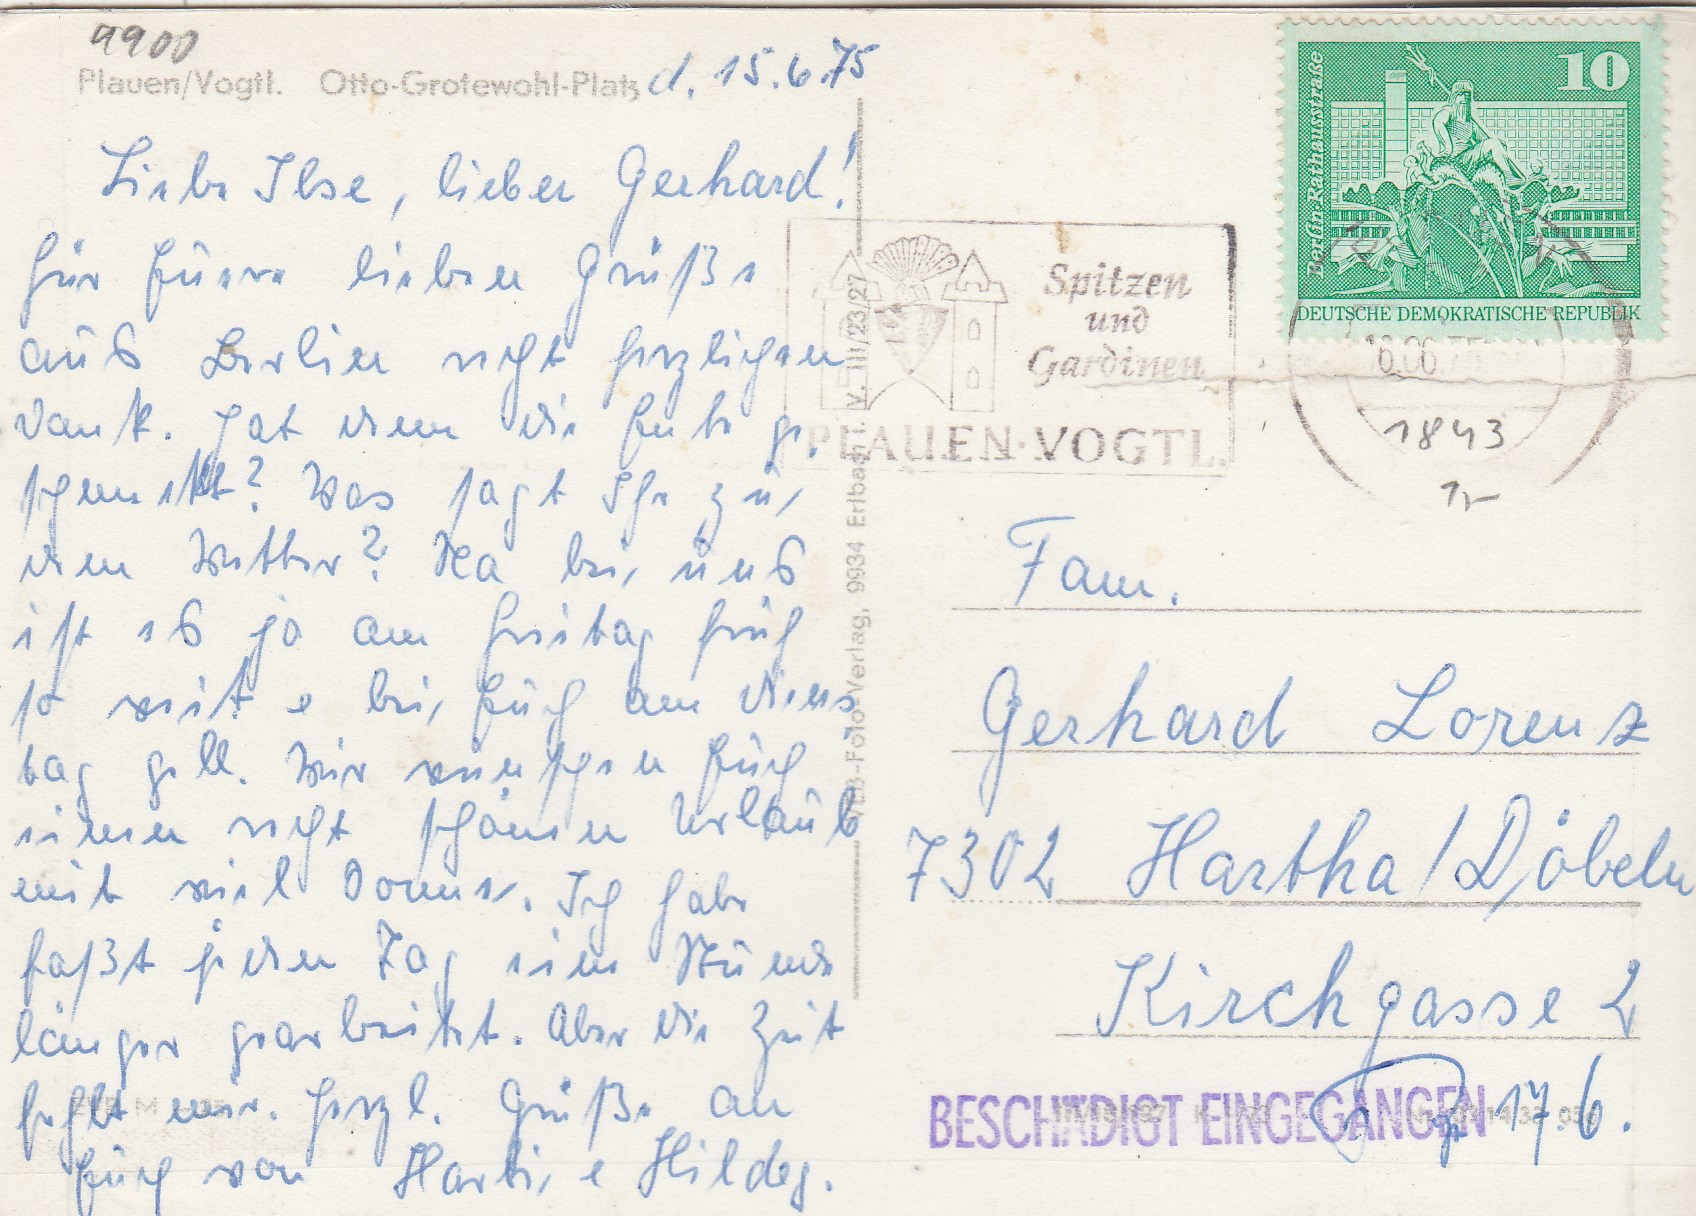 9900
Plauen/Vogtl. Otto-Grotewohl-Platz
d. 15.6.75
Liebe Ilse, lieber Gerhard!
für Euere lieben Grüße
aus Berlin recht herzlichen
Dank. Hat denn die Feier ge,
schmeckt? Was sagt Ihr zu,
dem Wetter? Na bei, uns
ist es ja am Freitag früh
so weit e bei, Euch am Diens
tag gell. Wir wünschen Euch
einen recht schönen Urlaub
mit viel Sonne. Ich habe
faßt jeden Tag eine Stunde
länger gearbeitet. Aber die Zeit
fehlt mir. Herzl. Grüße an
Euch von Martin, e Hildeg.
VEB-Foto-Verlag, 9934 Erlbach i. V. III/23/27
Spitzen
und
Gardinen
PLAUEN·VOGTL.
10
Berlin Rathausstraße
DEUTSCHE DEMOKRATISCHE REPUBLIK
1843
Fam.
Gerhard Lorenz
7302 Hartha/Döbeln
Kirchgasse 2
BESCHÄDIGT EINGEGANGEN
17.6.